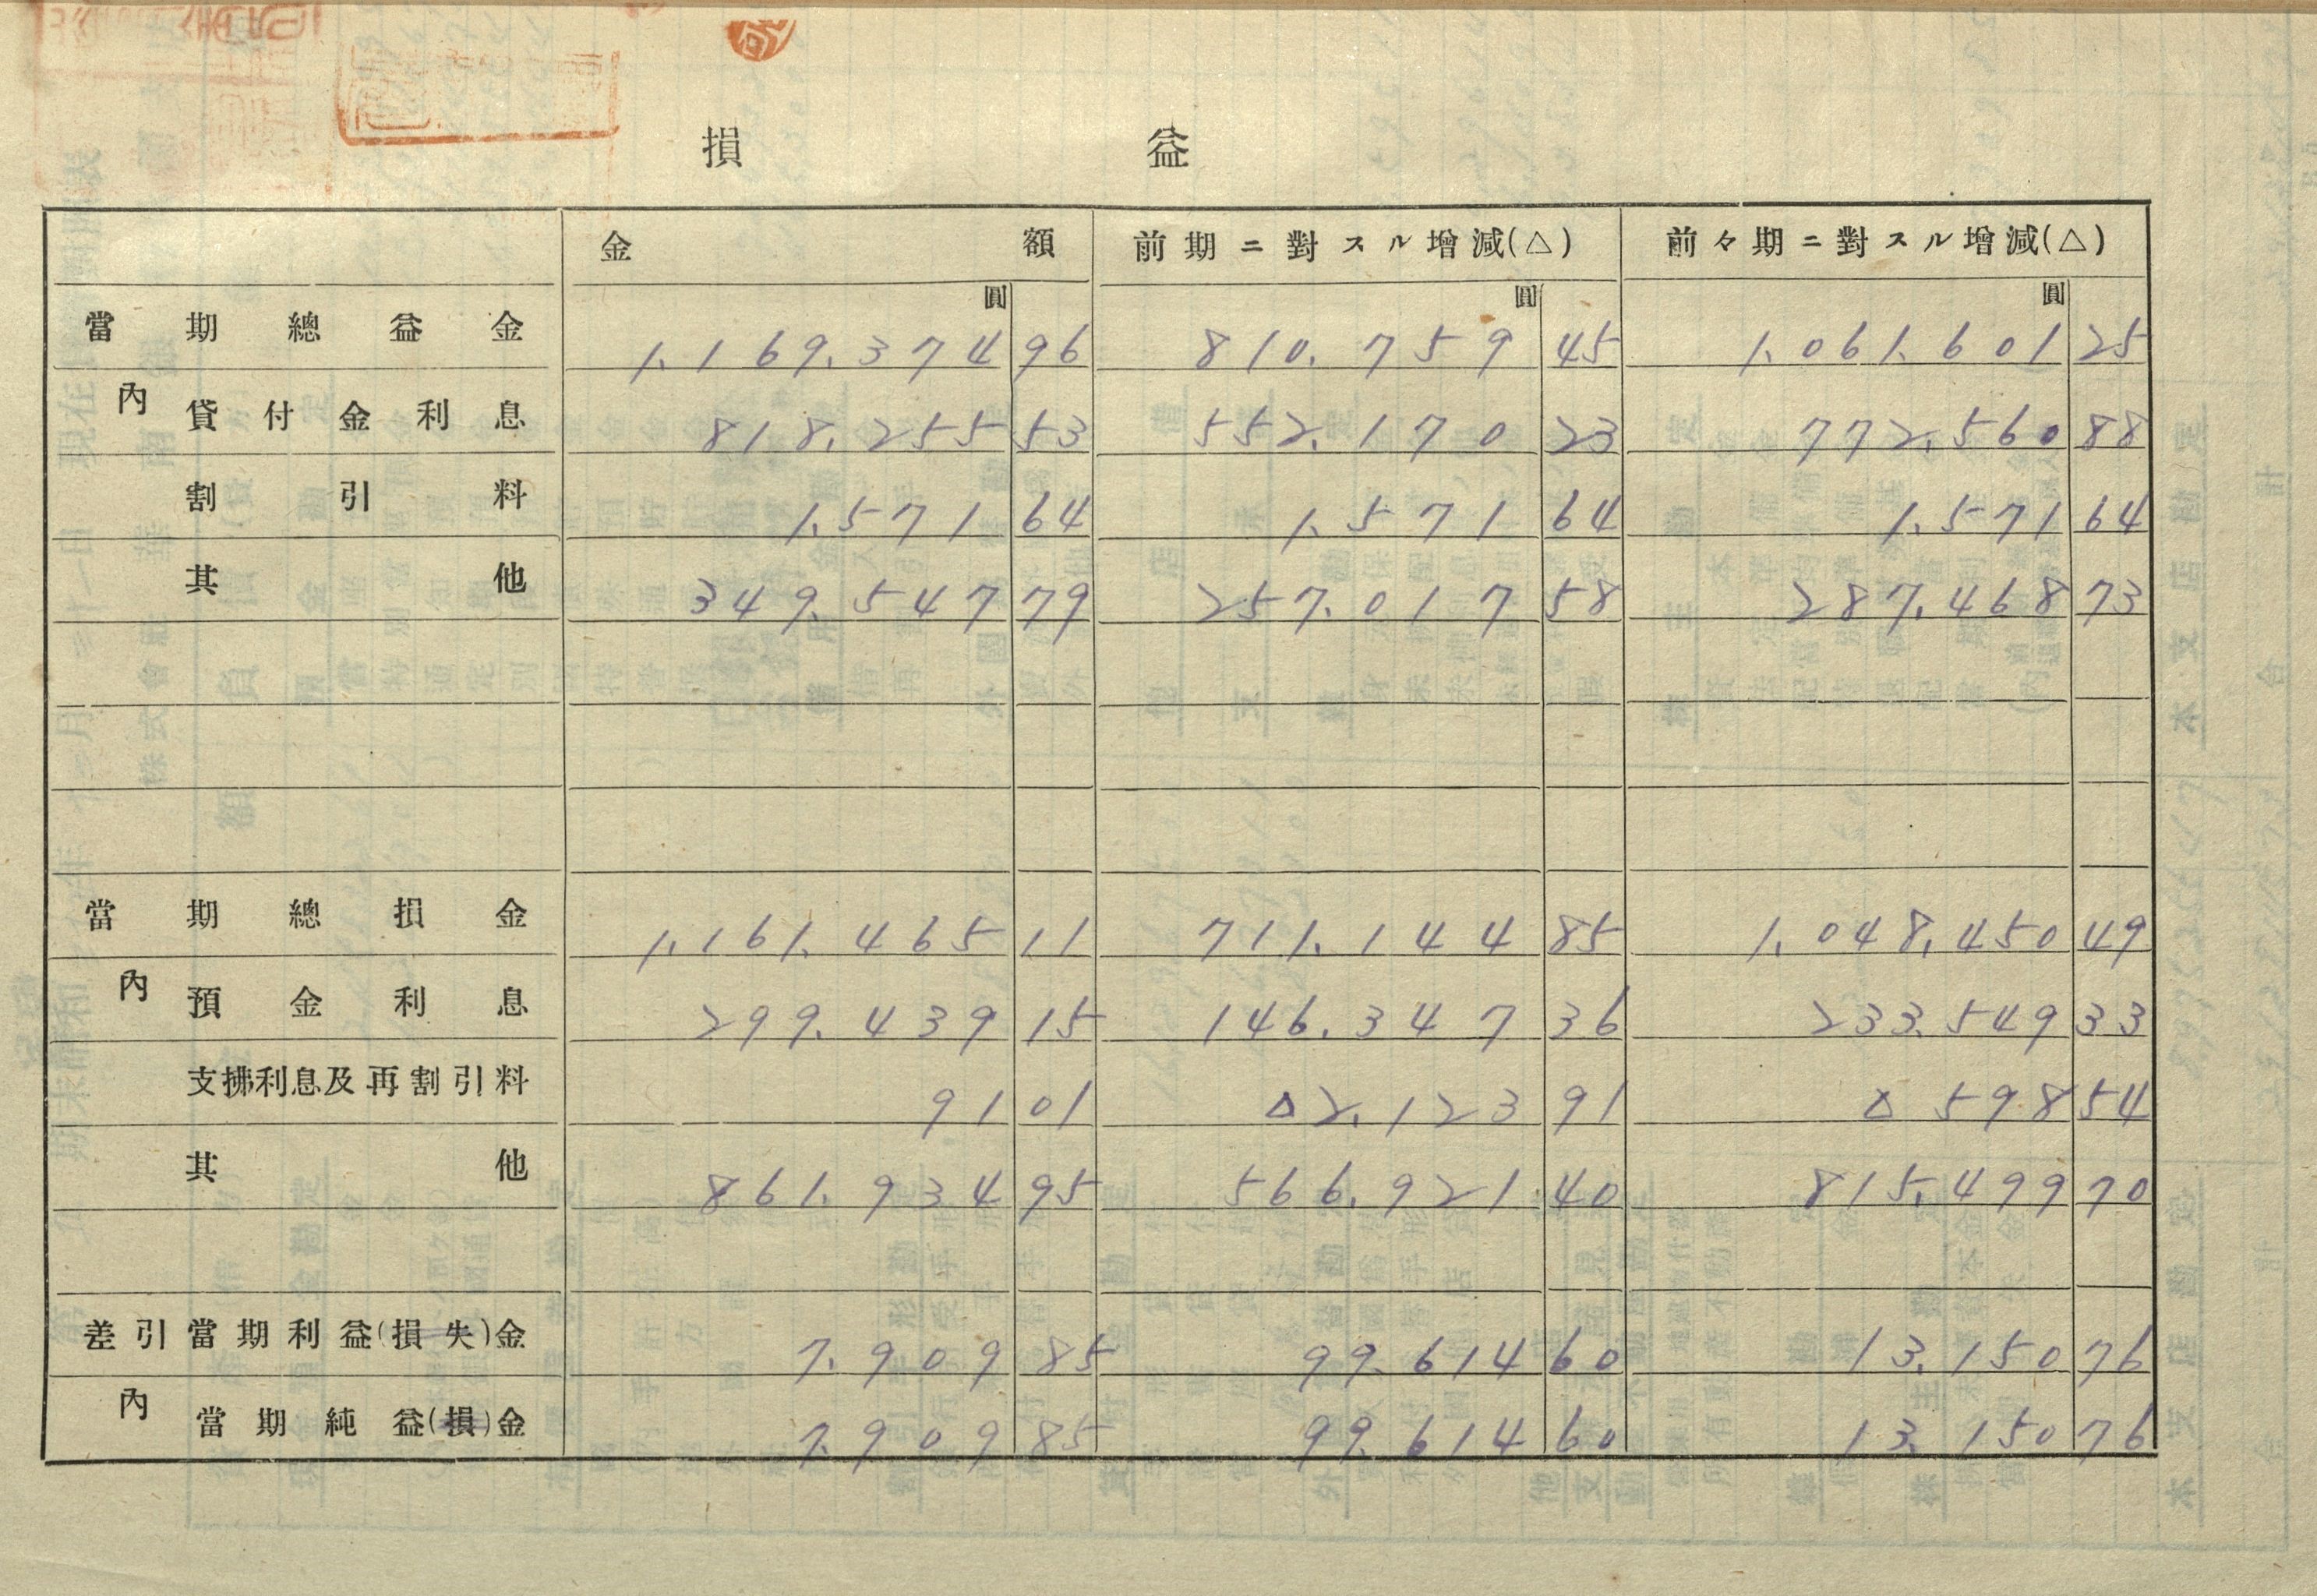 損 益
金 額 前期ニ對スル增減(△) 前々期ニ對スル增減(△)
圓 圓 圓
當期總益金 1,169,374 96 810,759 45 1,061,601 25
內 貸付金利息 818,255 53 552,170 23 772,560 88
割引料 1,571 64 1,571 64 1,571 64
其他 349,547 79 257,017 58 287,468 73
當期總損金 1,161,465 11 711,144 85 1,048,450 49
內 預金利息 299,439 15 146,347 36 233,549 33
支拂利息及再割引料 91 01 △2,123 91 △598 54
其他 861,934 95 566,921 40 815,499 70
差引當期利益(損失)金 7,909 85 99,614 60 13,150 76
內 當期純益(損)金 7,909 85 99,614 60 13,150 76